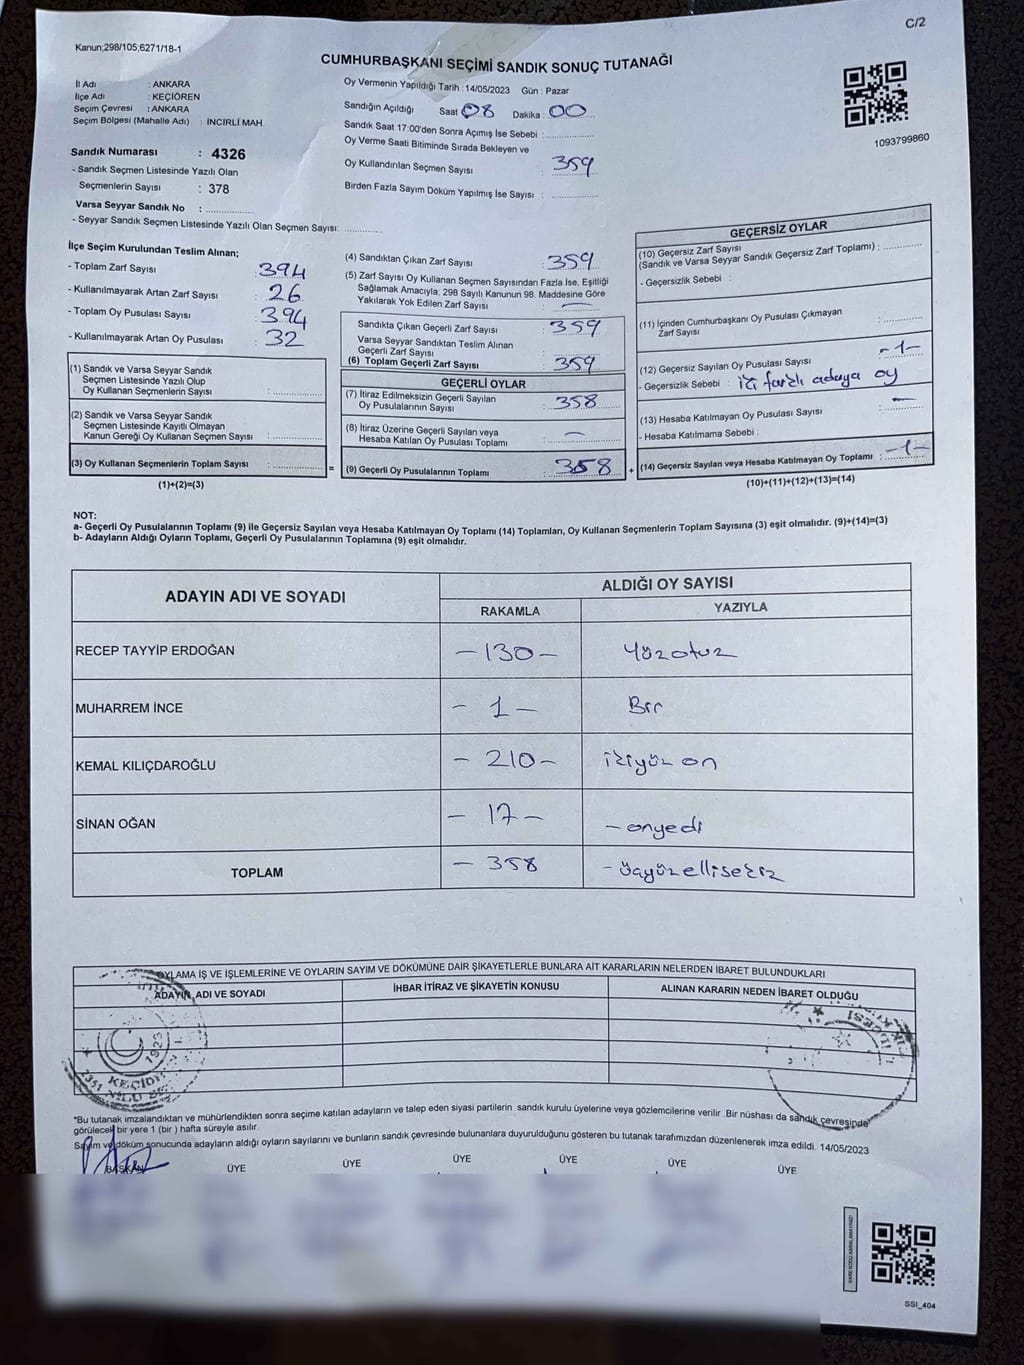 C/2
Kanun;298/105;6271/18-1
CUMHURBAŞKANI SEÇİMİ SANDIK SONUÇ TUTANAĞI
İl Adı : ANKARA
İlçe Adı : KEÇİÖREN
Seçim Çevresi : ANKARA
Seçim Bölgesi (Mahalle Adı) : İNCİRLİ MAH.
Oy Vermenin Yapıldığı Tarih :14/05/2023 Gün : Pazar
Sandığın Açıldığı Saat 08 Dakika : 00
Sandık Saat 17:00'den Sonra Açımış İse Sebebi :
Oy Verme Saati Bitiminde Sırada Bekleyen ve
Oy Kullandırılan Seçmen Sayısı : 359
Birden Fazla Sayım Döküm Yapılmış İse Sayısı :
1093799860
Sandık Numarası : 4326
- Sandık Seçmen Listesinde Yazılı Olan
Seçmenlerin Sayısı : 378
Varsa Seyyar Sandık No :
- Seyyar Sandık Seçmen Listesinde Yazılı Olan Seçmen Sayısı:
İlçe Seçim Kurulundan Teslim Alınan;
- Toplam Zarf Sayısı : 394
- Kullanılmayarak Artan Zarf Sayısı : 26
- Toplam Oy Pusulası Sayısı : 394
- Kullanılmayarak Artan Oy Pusulası : 32
(1) Sandık ve Varsa Seyyar Sandık
Seçmen Listesinde Yazılı Olup
Oy Kullanan Seçmenlerin Sayısı :
(2) Sandık ve Varsa Seyyar Sandık
Seçmen Listesinde Kayıtlı Olmayan
Kanun Gereği Oy Kullanan Seçmen Sayısı :
(3) Oy Kullanan Seçmenlerin Toplam Sayısı :
(1)+(2)=(3)
=
(4) Sandıktan Çıkan Zarf Sayısı : 359
(5) Zarf Sayısı Oy Kullanan Seçmen Sayısından Fazla İse, Eşitliği
Sağlamak Amacıyla; 298 Sayılı Kanunun 98. Maddesine Göre
Yakılarak Yok Edilen Zarf Sayısı : —
Sandıkta Çıkan Geçerli Zarf Sayısı : 359
Varsa Seyyar Sandıktan Teslim Alınan
Geçerli Zarf Sayısı :
(6) Toplam Geçerli Zarf Sayısı : 359
GEÇERLİ OYLAR
(7) İtiraz Edilmeksizin Geçerli Sayılan
Oy Pusulalarının Sayısı : 358
(8) İtiraz Üzerine Geçerli Sayılan veya
Hesaba Katılan Oy Pusulası Toplamı : —
(9) Geçerli Oy Pusulalarının Toplamı : 358
+
GEÇERSİZ OYLAR
(10) Geçersiz Zarf Sayısı
(Sandık ve Varsa Seyyar Sandık Geçersiz Zarf Toplamı) :
- Geçersizlik Sebebi :
(11) İçinden Cumhurbaşkanı Oy Pusulası Çıkmayan
Zarf Sayısı :
(12) Geçersiz Sayılan Oy Pusulası Sayısı : -1-
- Geçersizlik Sebebi : iki farklı adaya oy
(13) Hesaba Katılmayan Oy Pusulası Sayısı : —
- Hesaba Katılmama Sebebi :
(14) Geçersiz Sayılan veya Hesaba Katılmayan Oy Toplamı : -1-
(10)+(11)+(12)+(13)=(14)
NOT:
a- Geçerli Oy Pusulalarının Toplamı (9) ile Geçersiz Sayılan veya Hesaba Katılmayan Oy Toplamı (14) Toplamları, Oy Kullanan Seçmenlerin Toplam Sayısına (3) eşit olmalıdır. (9)+(14)=(3)
b- Adayların Aldığı Oyların Toplamı, Geçerli Oy Pusulalarının Toplamına (9) eşit olmalıdır.
ADAYIN ADI VE SOYADI
ALDIĞI OY SAYISI
RAKAMLA YAZIYLA
RECEP TAYYİP ERDOĞAN -130- Yüzotuz
MUHARREM İNCE - 1 - Bir
KEMAL KILIÇDAROĞLU - 210- ikiyüz on
SİNAN OĞAN - 17 - - onyedi
TOPLAM - 358 - üçyüzellisekiz
OYLAMA İŞ VE İŞLEMLERİNE VE OYLARIN SAYIM VE DÖKÜMÜNE DAİR ŞİKAYETLERLE BUNLARA AİT KARARLARIN NELERDEN İBARET BULUNDUKLARI
ADAYIN ADI VE SOYADI İHBAR İTİRAZ VE ŞİKAYETİN KONUSU ALINAN KARARIN NEDEN İBARET OLDUĞU
1923
2351
KEÇİÖR
*Bu tutanak imzalandıktan ve mühürlendikten sonra seçime katılan adayların ve talep eden siyasi partilerin sandık kurulu üyelerine veya gözlemcilerine verilir .Bir nüshası da sandık çevresinde
görülecek bir yere 1 (bir ) hafta süreyle asılır.
Sayım ve döküm sonucunda adayların aldığı oyların sayılarını ve bunların sandık çevresinde bulunanlara duyurulduğunu gösteren bu tutanak tarafımızdan düzenlenerek imza edildi. 14/05/2023
BAŞKAN ÜYE ÜYE ÜYE ÜYE ÜYE ÜYE
KARE KODU KARALAMAYINIZ!
SSI_404